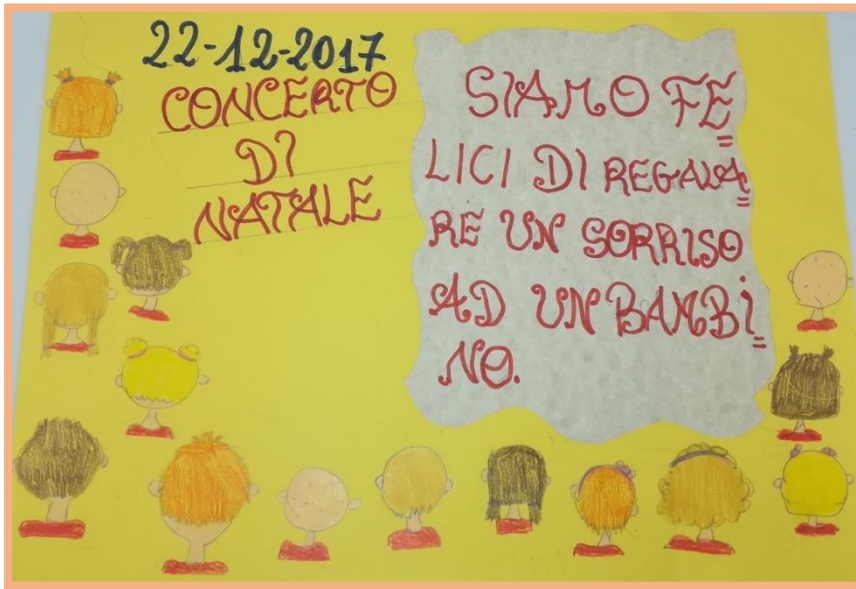 22-12-2017
CONCERTO
DI
NATALE
SIAMO FE=
LICI DI REGALA=
RE UN SORRISO
AD UN BAMBI=
NO.